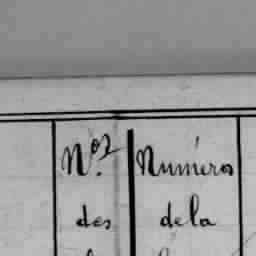 Nos Numéros
des de la